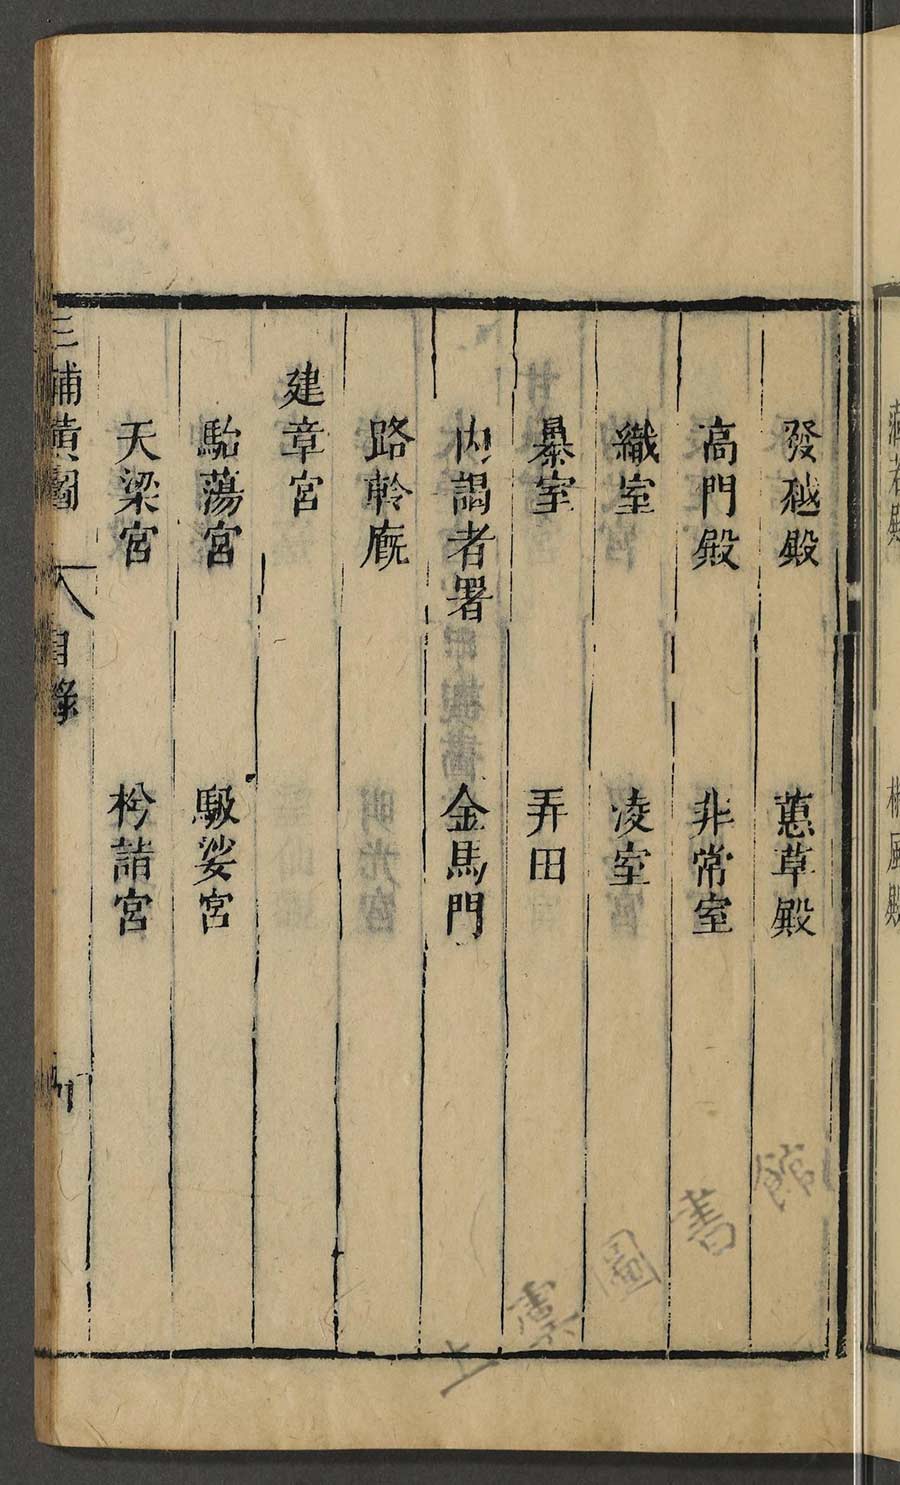 發越殿 蕙草殿
高門殿 非常室
織室 凌室
暴室 弄田
內謁者署 金馬門
路軨廐
建章宮
駘蕩宮 馺娑宮
天梁宮 枍詣宮
三輔黃圖 目錄
上虞圖書館